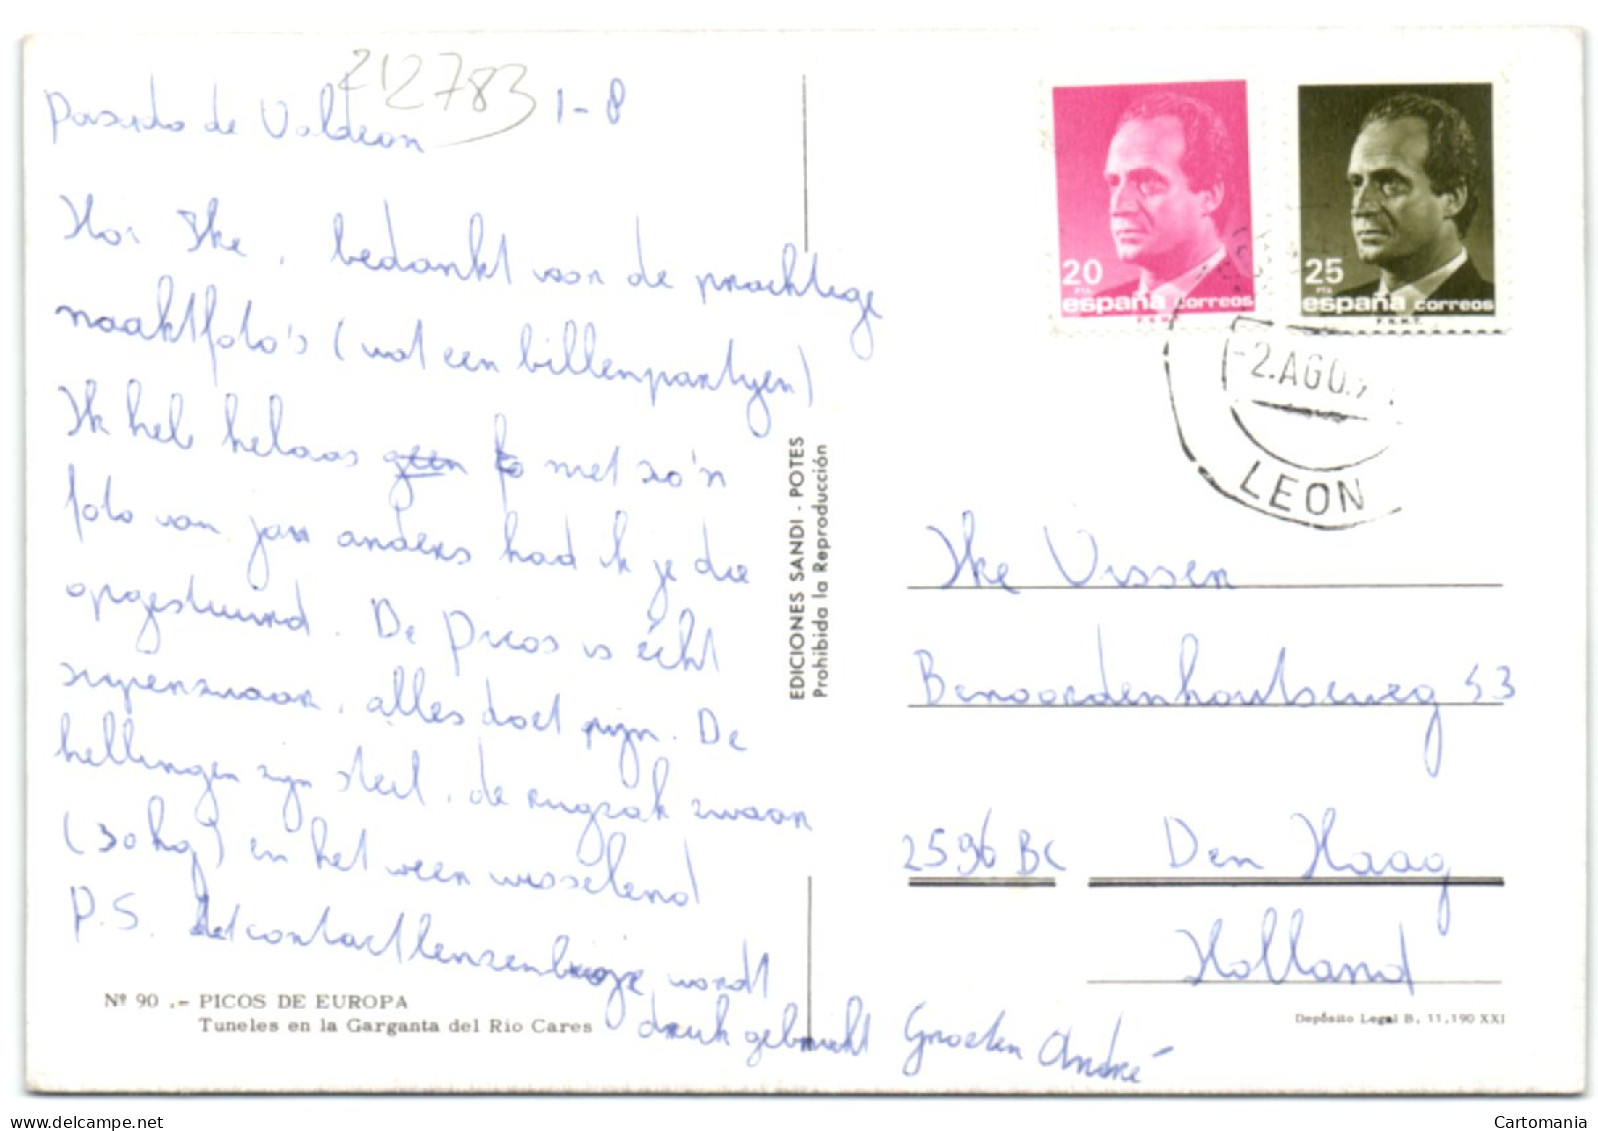 212783
Posada de Valdeon 1-8
Hoi Ike, bedankt voor de prachtige
naaktfoto's (wat een billenpartijen)
Ik heb helaas geen fo met zo'n
foto van jan anders had ik je die
opgestuurd. De Picos is écht
superzwaar, alles doet pijn. De
hellingen zijn steil, de rugzak zwaar
(30 kg) en het weer wisselend
P.S. Het contactlenzen wordt
druk gebruikt Groeten André
Nº 90 .- PICOS DE EUROPA
Tuneles en la Garganta del Rio Cares
EDICIONES SANDI - POTES
Prohibida la Reproducción
20
PTA
españa correos
F.N.M.
25
PTA
españa correos
F.N.M.T.
-2.AGO.
LEON
Ike Vissen
Benoordenhoutseweg 53
2596 BC Den Haag
Holland
Depósito Legal B. 11.190 XXI
Cartomania